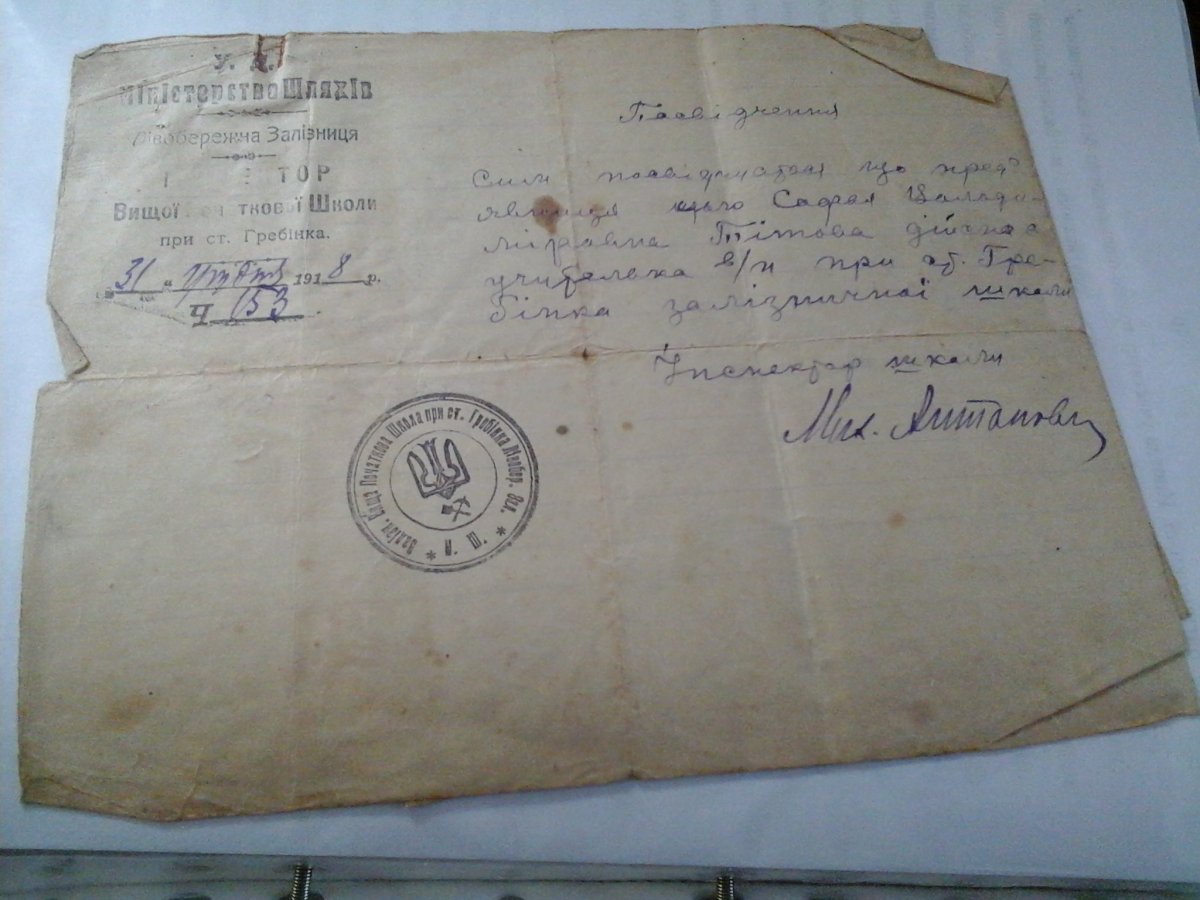 У. Д.
Міністерство Шляхів
Лівобережна Залізниця
ТОР
Вищої ткової Школи
при ст. Гребінка.
31 Грудня 1918 р.
Ч 153
Посвідчення
Сим посвідчається що пред'
явниця цього Софія Володи-
мировна Тітова дійсно є
учителька в/п при ст. Гре-
бінка залізничної школи
Інспектор школи
Мих.
Залізн. Вища Початкова Школа при ст. Гребінка Лівобер. Зал. * Ш. *